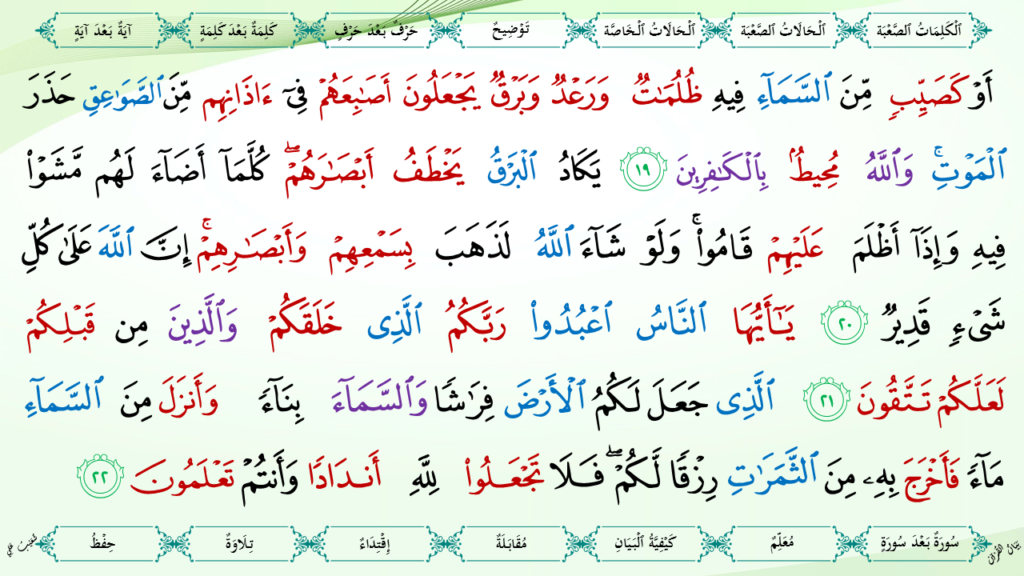 اَلْكَلِمَاتُ الصَّعْبَة اَلْحَالَاتُ الصَّعْبَة اَلْحَالَاتُ الْخَاصَّة تَوْضِيحٌ حَرْفٌ بَعْدَ حَرْفٍ كَلِمَةٌ بَعْدَ كَلِمَةٍ آيَةٌ بَعْدَ آيَةٍ
أَوْ كَصَيِّبٍ مِّنَ ٱلسَّمَآءِ فِيهِ ظُلُمَٰتٌ وَرَعْدٌ وَبَرْقٌ يَجْعَلُونَ أَصَٰبِعَهُمْ فِىٓ ءَاذَانِهِم مِّنَ ٱلصَّوَٰعِقِ حَذَرَ
ٱلْمَوْتِۚ وَٱللَّهُ مُحِيطٌۢ بِٱلْكَٰفِرِينَ ١٩ يَكَادُ ٱلْبَرْقُ يَخْطَفُ أَبْصَٰرَهُمْۖ كُلَّمَآ أَضَآءَ لَهُم مَّشَوْا۟
فِيهِ وَإِذَآ أَظْلَمَ عَلَيْهِمْ قَامُوا۟ۚ وَلَوْ شَآءَ ٱللَّهُ لَذَهَبَ بِسَمْعِهِمْ وَأَبْصَٰرِهِمْۚ إِنَّ ٱللَّهَ عَلَىٰ كُلِّ
شَىْءٍ قَدِيرٌ ٢٠ يَٰٓأَيُّهَا ٱلنَّاسُ ٱعْبُدُوا۟ رَبَّكُمُ ٱلَّذِى خَلَقَكُمْ وَٱلَّذِينَ مِن قَبْلِكُمْ
لَعَلَّكُمْ تَتَّقُونَ ٢١ ٱلَّذِى جَعَلَ لَكُمُ ٱلْأَرْضَ فِرَٰشًا وَٱلسَّمَآءَ بِنَآءً وَأَنزَلَ مِنَ ٱلسَّمَآءِ
مَآءً فَأَخْرَجَ بِهِۦ مِنَ ٱلثَّمَرَٰتِ رِزْقًا لَّكُمْۖ فَلَا تَجْعَلُوا۟ لِلَّهِ أَندَادًا وَأَنتُمْ تَعْلَمُونَ ٢٢
سُورَةٌ بَعْدَ سُورَةٍ مُعَلِّمٌ كَيْفِيَّةُ الْبَيَانِ مُقَابَلَةٌ إِقْتِدَاءٌ تِلَاوَةٌ حِفْظٌ